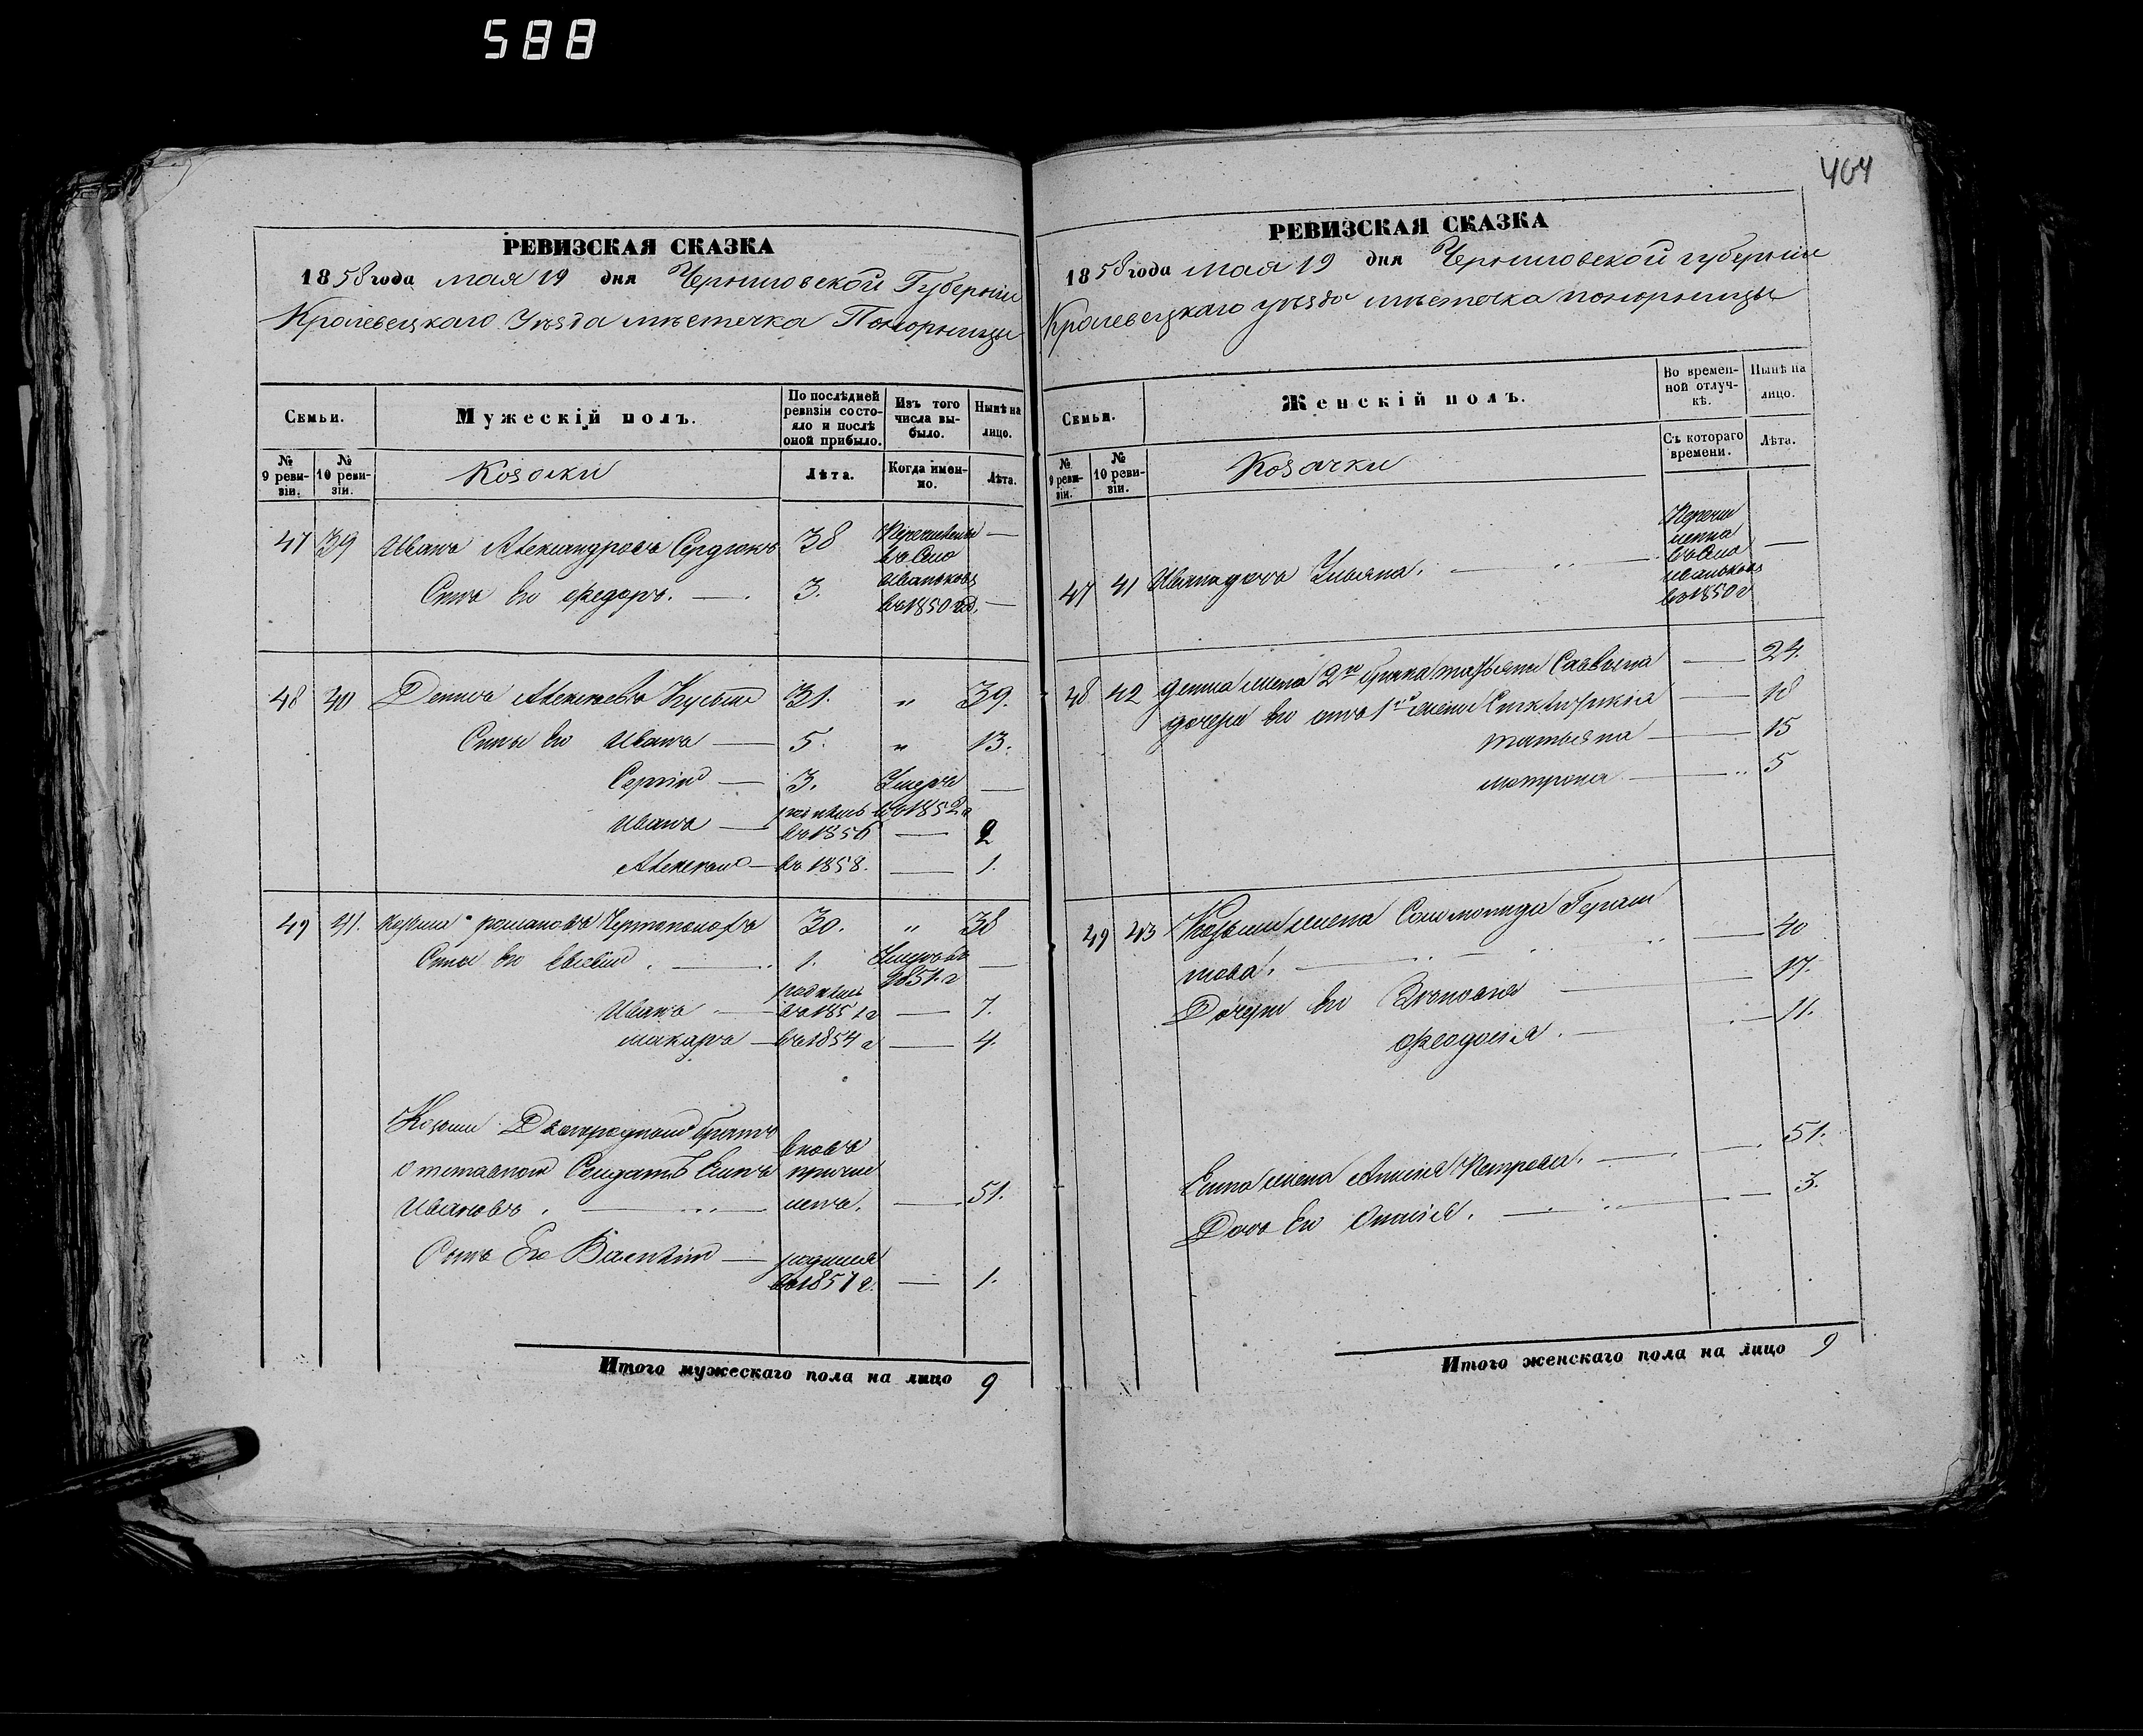 588
464
РЕВИЗСКАЯ СКАЗКА
1858 года мая 19 дня Черниговской Губерніи
Кролевецкаго Уѣзда мѣстечка Понорницы
Семьи.
Мужескій полъ.
По послѣдней ревизіи состо-
яло и послѣ
оной прибыло.
Изъ того
числа вы-
было.
Нынѣ на
лицо.
№
9 реви-
зіи.
№
10 реви-
зіи.
Козаки
Лѣта.
Когда имен-
но.
Лѣта.
47 39 Иванъ Александровъ Сердюкъ 38 —
въ Село
Сынъ его Федоръ. — 3. въ 1850 год. —
48 40 Денисъ Алексѣевъ 31. " 39.
Сыны его Иванъ — 5. " 13.
Сергій — 3. Умеръ —
въ 1852 г
Иванъ — родился въ 1856 — 2
Алексѣй — въ 1858. — 1.
49 41. Козьма Романовъ Чертополохъ 30. " 38
Сыны его — 1. Умеръ въ 1851. г —
Иванъ — родился въ 1851 г — 7.
Макаръ — въ 1854 г — 4.
Козьмы Двоюродный братъ
отставной Солдатъ вновь
Ивановъ. — причи
сленъ. — 51.
Сынъ Его Василій — родился
въ 1857 г. — 1.
Итого мужескаго пола на лицо 9
РЕВИЗСКАЯ СКАЗКА
1858 года мая 19 дня Черниговской губерніи
Кролевецкаго уѣзда мѣстечка понорницы
Семьи.
Женскій полъ.
Во времен-
ной отлуч-
кѣ.
Нынѣ на
лицо.
№
9 реви-
зіи.
№
10 реви-
зіи.
Козачки
Съ котораго
времени.
Лѣта.
Перечи
слена
въ Село
въ 1850 г
47 41 Ульяна. —
48 42 Дениса жена 2го брака Саввина — 24.
дочери его отъ 1й жены — 18
татьяна — 15
матрона — 5
49 43 Козьмы жена Соломонида Гераси
мова. — 40
Дочери его — 17.
Феодосія. — 11.
жена Петрова. — 51.
Дочь его — 3.
Итого женскаго пола на лицо 9